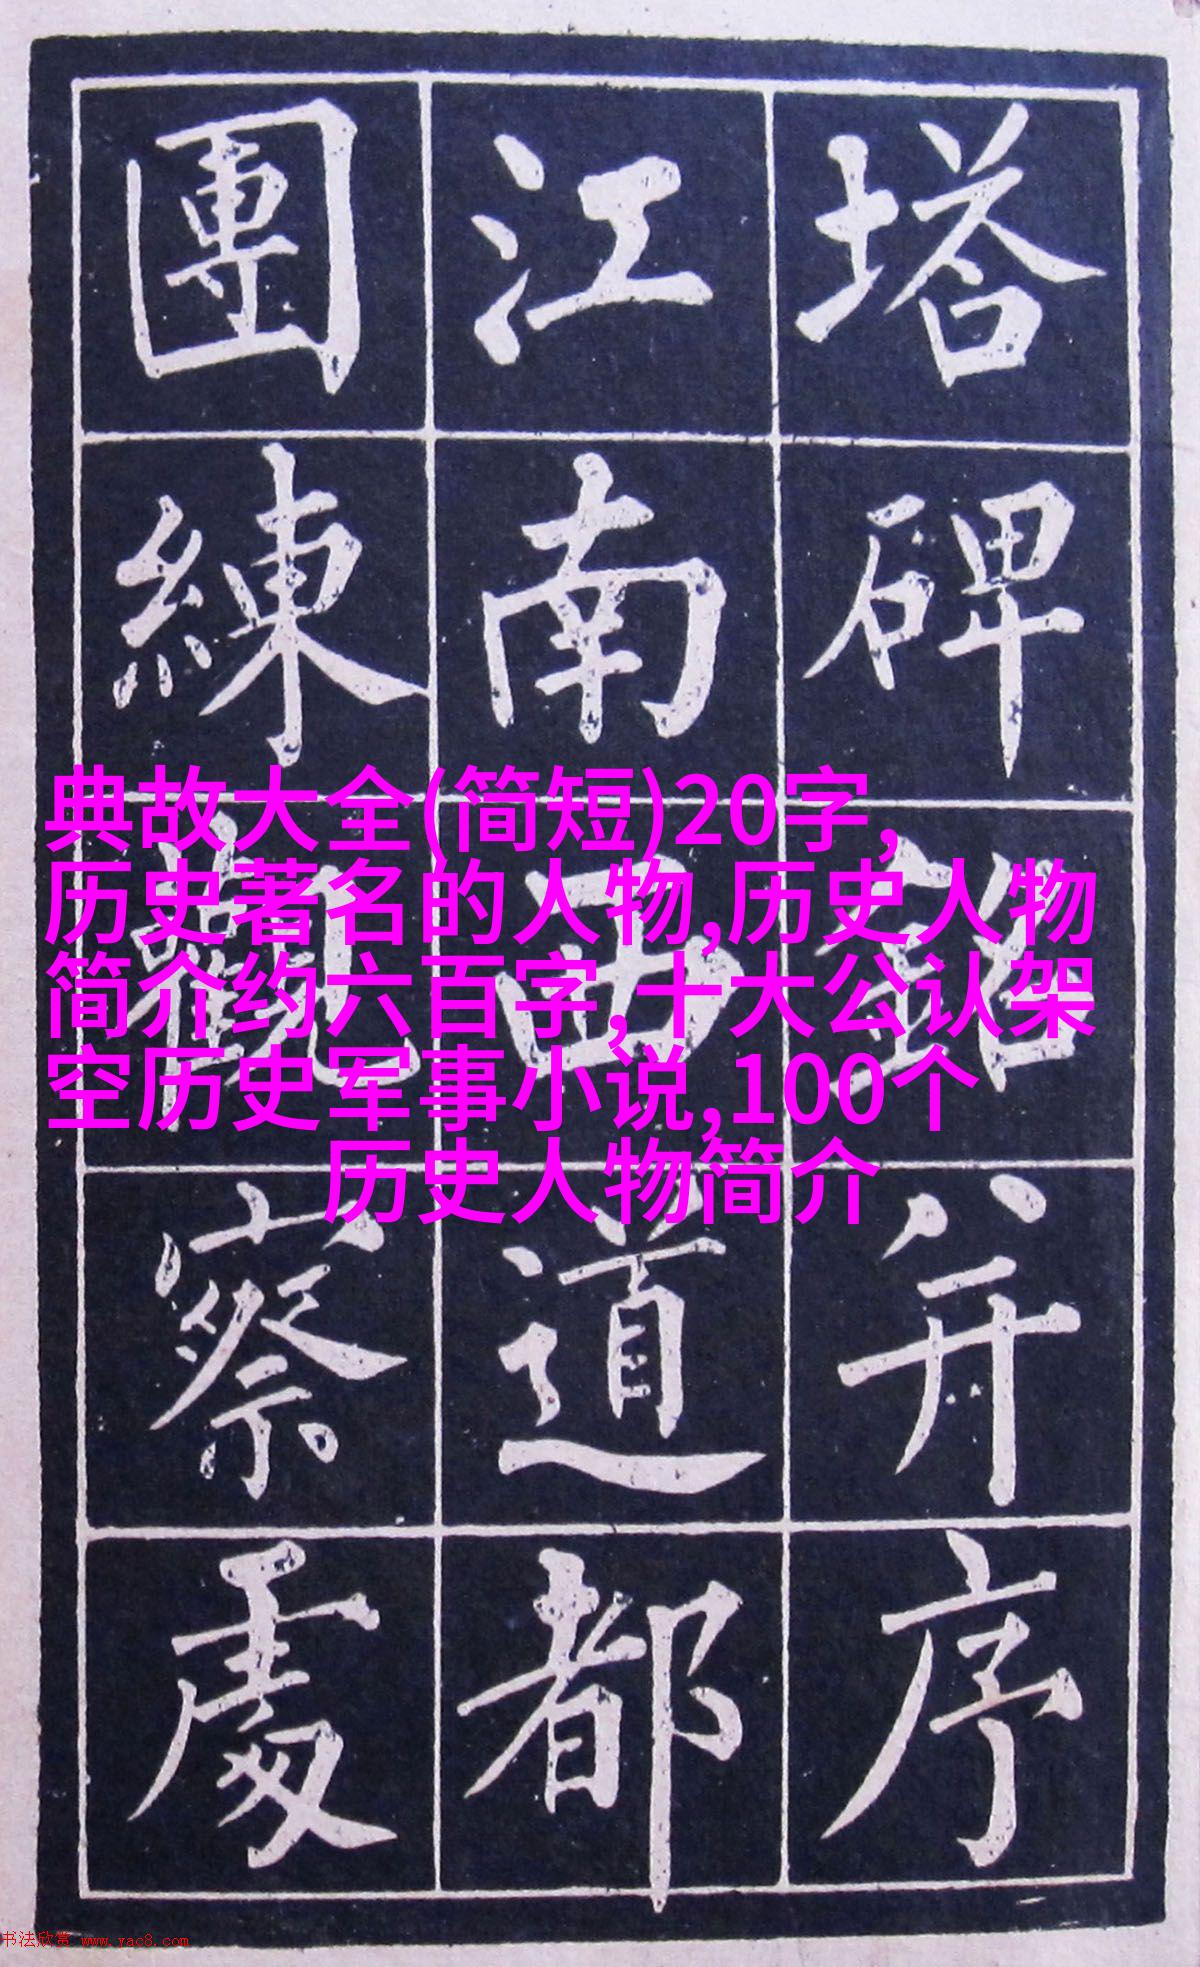 塔碑銘并序
江南西道都
團練觀察處
典故大全(简短)20字,
历史著名的人物,历史人物
简介约六百字,十大公认架
空历史军事小说,100个
历史人物简介
书法欣赏 www.yac8.com